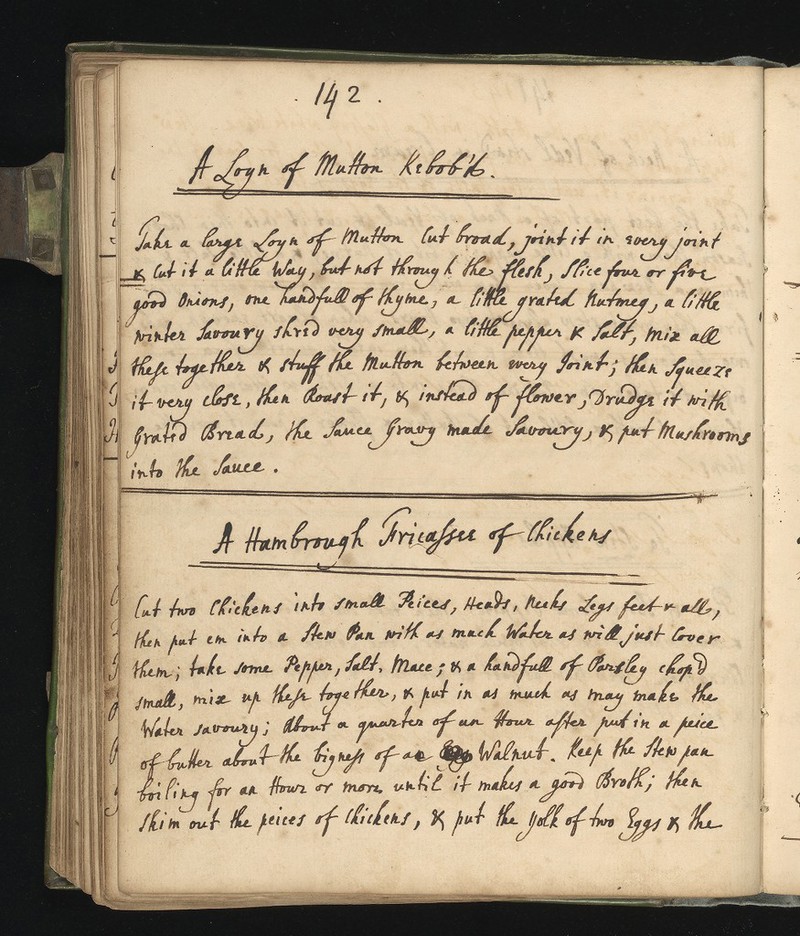 . 142 .
A Loyn of Mutton Kebob'd.
Take a large Loyn of Mutton Cut broad, joint it in every joint
& Cut it a little Way, but not through the flesh, Slice four or five
good Onions, one handfull of thyme, a little grated Nutmeg, a little
winter Savoury shred very small, a little pepper & Salt, mix all
these together & stuff the Mutton between every Joint; then Squeeze
it very close, then Roast it, & instead of flower, Drudge it with
Grated Bread, the Sauce Gravy made Savoury, & put Mushrooms
into the Sauce.
A Hambrough Fricassee of Chickens
Cut two Chickens into small Peices, Heads, Necks Legs feet & all,
then put em into a Stew Pan with as much Water as will just Cover
them; take some Pepper, Salt, Mace; & a handfull of Parsley chop'd
small, mix up these together, & put in as much as may make the
Water savoury; About a quarter of an Hour after put in a peice
of butter about the bigness of a Walnut. Keep the Stew pan
boiling for an Hour or more until it makes a good Broth; then
Skim out the peices of Chickens, & put the yolk of two Eggs & the